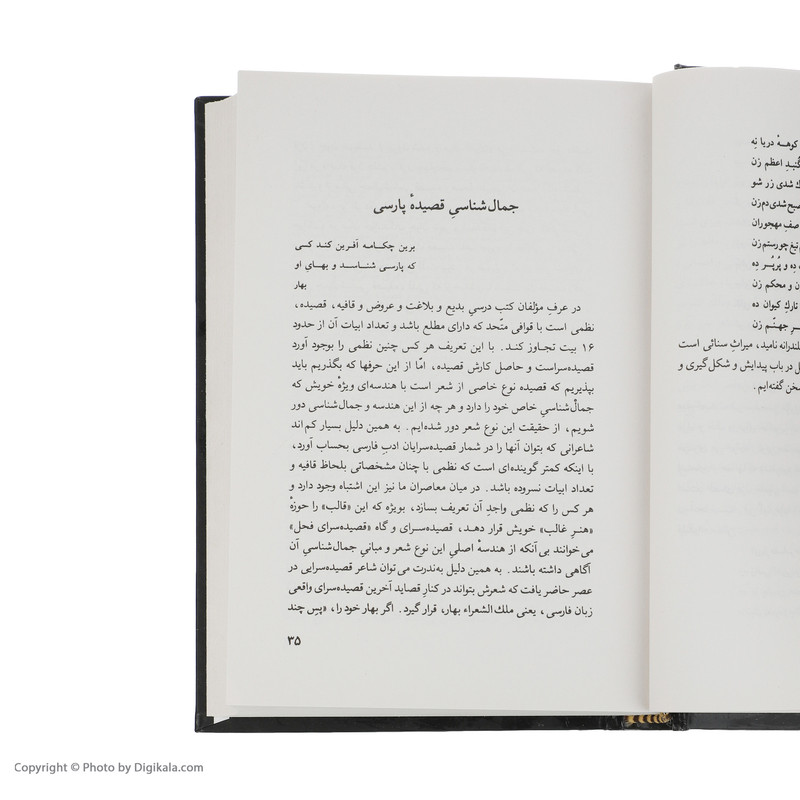 کوهـهٔ دریا نِه
گُنبدِ اعظم زن
شدی زر شو
صبح شدی دم زن
صفِ مهجوران
تیغ چورستم زن
دِه و پُرپُـر دِه
و محکم زن
تاركِ کیوان ده
جهنّم زن
نامید، میراثِ سنائی است
در باب پیدایش و شکل‌گیری و
گفته‌ایم.
جمال‌شناسیِ قصیدهٔ پارسی
برین چکـامـه آفـرین کنـد کسی
که پارسی شناسـد و بهـایِ او
بهار
در عرفِ مؤلفان کتب درسیِ بدیع و بلاغت و عروض و قافیه، قصیده،
نظمی است با قوافی متّحد که دارای مطلع باشد و تعداد ابیات آن از حدود
۱۶ بیت تجاوز کنـد. با این تعریف هر کس چنین نظمی را بوجود آورد
قصیده‌سراست و حاصل کارش قصیده، امّا از این حرفها که بگذریم باید
بپذیریم که قصیده نوع خاصی از شعر است با هندسه‌ای ویژهٔ خویش که
جمال‌شناسیِ خاص خود را دارد و هر چه از این هندسه و جمال‌شناسی دور
شویم، از حقیقت این نوع شعر دور شده‌ایم. به همین دلیل بسیار کم‌اند
شاعرانی که بتوان آنها را در شمار قصیده‌سرایان ادبِ فارسی بحساب آورد،
با اینکه کمتر گوینده‌ای است که نظمی با چنان مشخصاتی بلحاظ قافیه و
تعداد ابیات نسروده باشد. در میان معاصران ما نیز این اشتباه وجود دارد و
هر کس را که نظمی واجدِ آن تعریف بسازد، بویژه که این «قالب» را حوزهٔ
«هنـرِ غالب» خویش قرار دهـد، قصیده‌سـرای و گاه «قصیده‌سرای فحل»
می‌خوانند بی‌آنکه از هندسهٔ اصلیِ این نوع شعر و مبانیِ جمال‌شناسیِ آن
آگاهی داشته باشند. به همین دلیل به‌ندرت می‌توان شاعر قصیده‌سرایی در
عصر حاضر یافت که شعرش بتواند در کنارِ قصایدِ آخرین قصیده‌سرای واقعی
زبان فارسی، یعنی ملك‌الشعراء بهار، قرار گیرد. اگر بهار خود را، «پسِ چند
۳۵
Copyright © Photo by Digikala.com